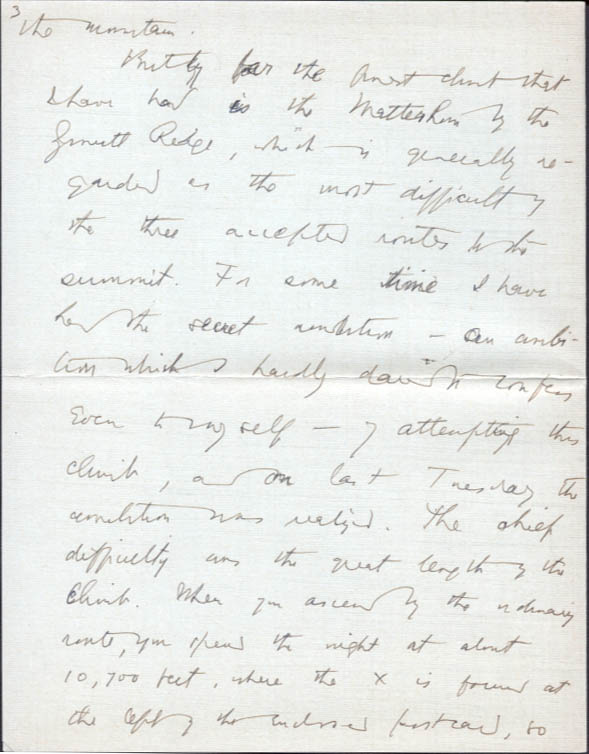 3
the mountain.
But by far the finest climb that
I have had is the Matterhorn by the
Zmutt Ridge, which is generally re-
garded as the most difficult of
the three accepted routes to the
summit. For some time I have
had the secret ambition – an ambi-
tion which I hardly dared to confess
even to myself – of attempting this
climb, and on last Tuesday the
ambition was realized. The chief
difficulty was the great length of the
climb. When you ascend by the ordinary
route, you spend the night at about
10,700 feet, where the X is found at
the left of the enclosed postcard, so